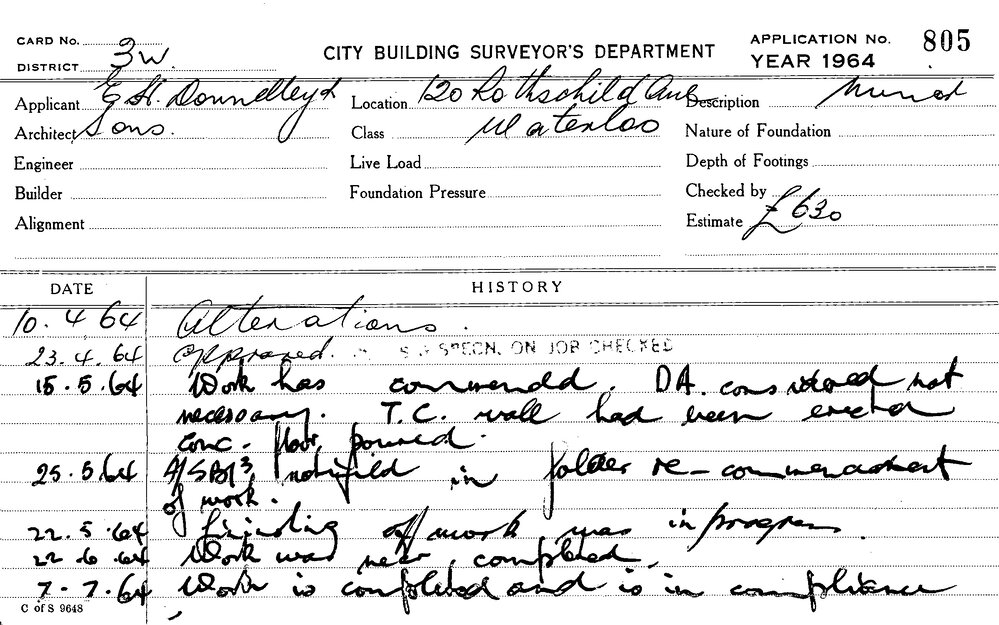 CARD No.
DISTRICT 3W.
CITY BUILDING SURVEYOR'S DEPARTMENT
APPLICATION No. 805
YEAR 1964
Applicant E H. Donnelley &
Architect Sons.
Engineer
Builder
Alignment
Location 120 Rothschild Ave
Class Waterloo
Live Load
Foundation Pressure
Description
Nature of Foundation
Depth of Footings
Checked by
Estimate £630
DATE HISTORY
10. 4 64 Alterations.
23. 4. 64 approved. SPECN. ON JOB CHECKED
15. 5. 64 Work has commenced. DA. considered not
necessary. T.C. wall had been erected
conc. floor poured.
25. 5. 64 notified in folder re-commencement
of work.
22. 5. 64 finishing of work was in progress
22. 6. 64 Work was near completed.
7. 7. 64 Work is completed and is in compliance
C of S 9648